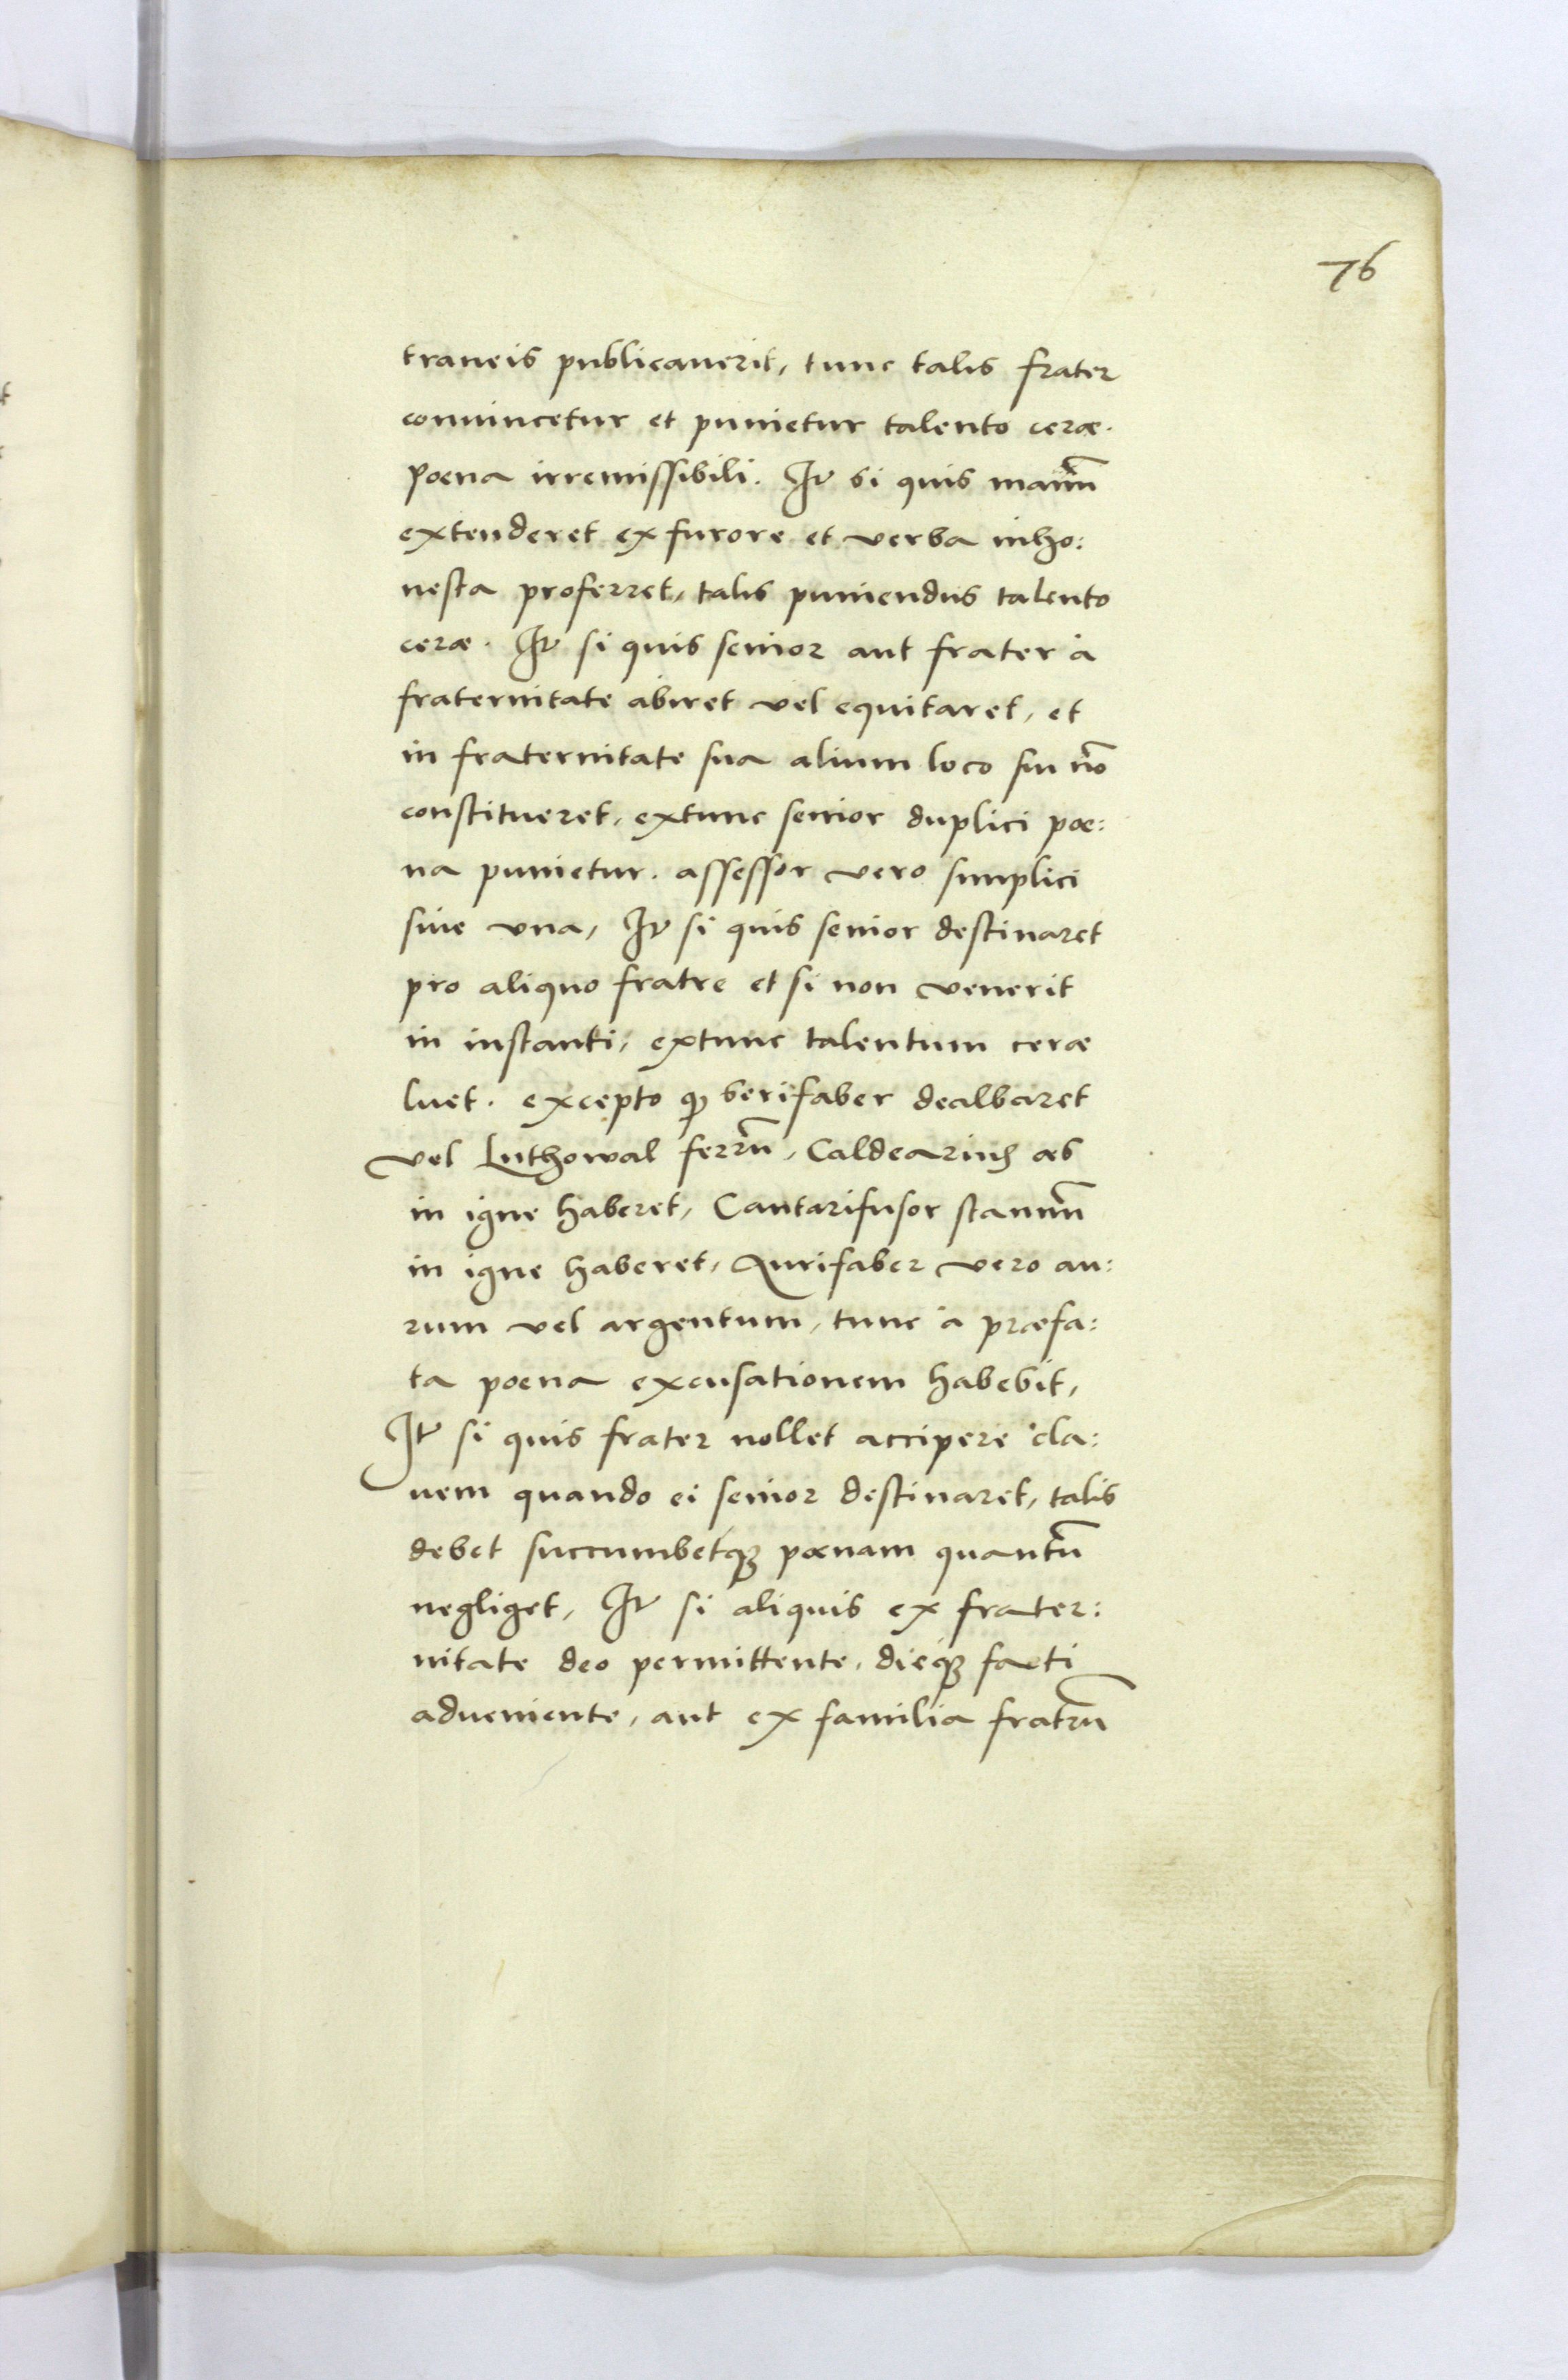 76
traneis publicauerit, tunc talis frater
conuincetur et punietur talento ceræ.
poena irremissibili. It̃ si quis manũ
extenderet ex furore et verba inho:
nesta proferret, talis puniendus talento
ceræ. It̃ si quis senior aut frater à
fraternitate abiret vel equitaret, et
in fraternitate sua alium loco sui nõ
constitueret, extunc senior duplici poe:
na punietur. assessor vero simplici
siue vna, It̃ si quis senior destinaret
pro aliquo fratre et si non venerit
in instanti, extunc talentum ceræ
luet. excepto ꝙ serifaber dealbaret
vel Luthowal ferrũ, Caldeariuſ æs
in igne haberet, Cantarifusor stannũ
in igne haberet, Aurifaber vero au:
rum vel argentum, tunc à præfa:
ta poena excusationem habebit,
It̃ si quis frater nollet accipere cla:
uem quando ei senior destinaret, talis
debet succumbetqꝫ pœnam quantũ
negliget, It̃ si aliquis ex frater:
nitate deo permittente, dieqꝫ facti
adueniente, aut ex familia fratrũ